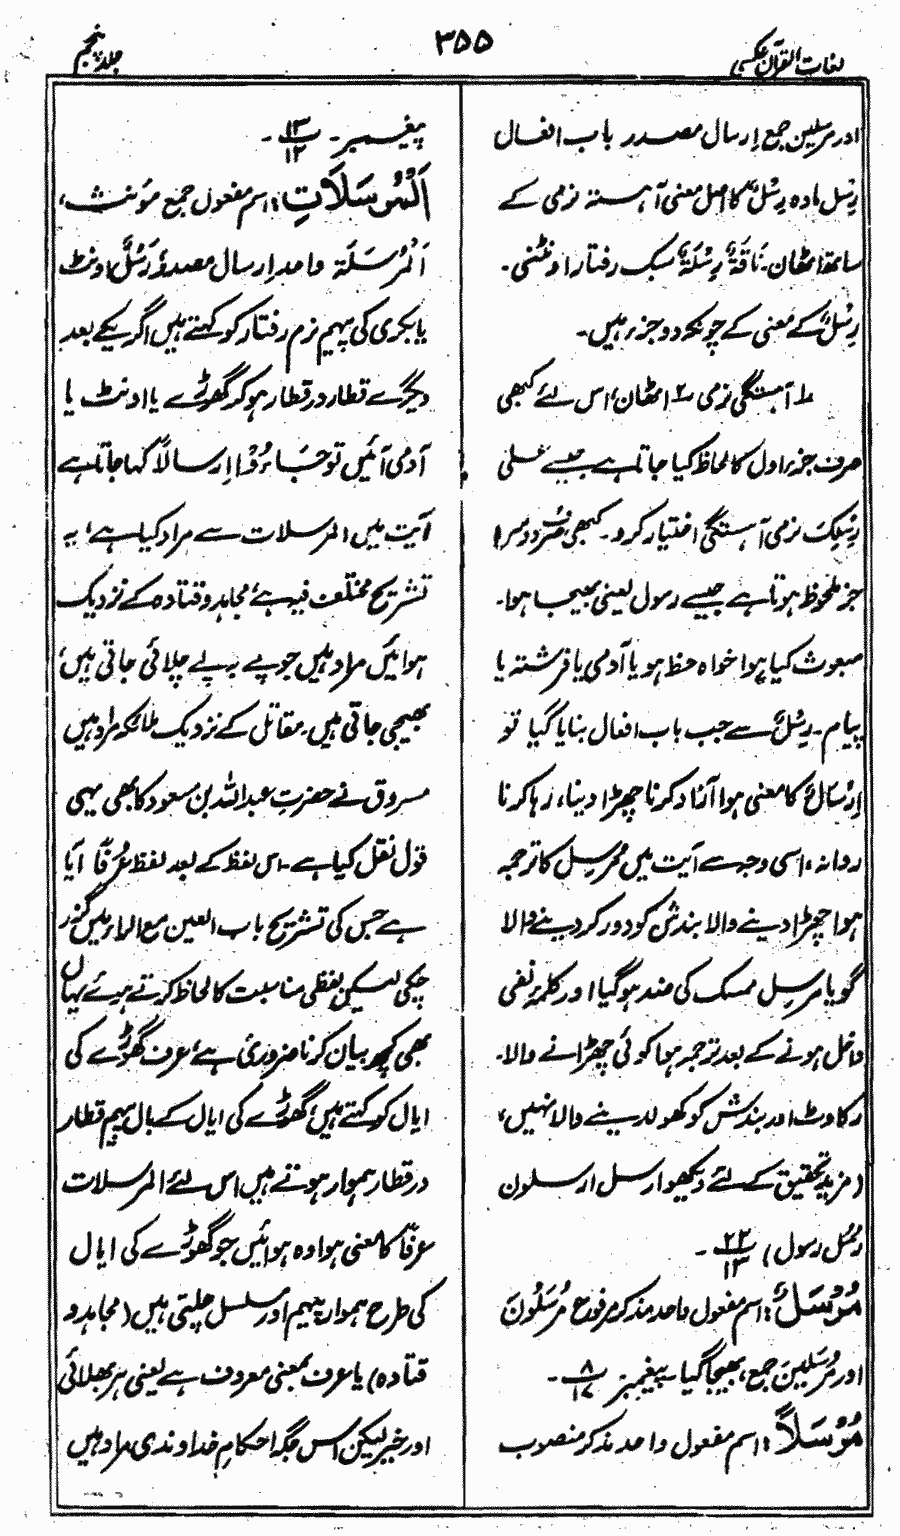 لغات القرآن عکسی
۳۵۵
جلد پنجم
اور مرسلین جمع اِرسال مصدر باب افعال
رِسل مادہ رِسْلٌ کا اصل معنی آہستہ نرمی کے
ساتھ اٹھان۔ نَاقَۃٌ رِسْلَۃٌ سبک رفتار اونٹنی۔
رِسْلٌ کے معنی کے چونکہ دو جزء ہیں۔
۱؎ آہستگی نرمی ۲؎ اٹھان، اس لئے کبھی
صرف جزء اول کا لحاظ کیا جاتا ہے جیسے علی
رِسْلِکَ نرمی آہستگی اختیار کرو۔ کبھی صرف دوسرا
جز ملحوظ ہوتا ہے جیسے رسول یعنی بھیجا ہوا۔
مبعوث کیا ہوا خواہ حظ ہو یا آدمی یا فرشتہ یا
پیام۔ رِسْلٌ سے جب باب افعال بنایا گیا تو
اِرْسَالٌ کا معنی ہوا آزاد کرنا چھڑا دینا، رہا کرنا
روانہ، اسی وجہ سے آیت میں مُرسِل کا ترجمہ
ہوا چھڑا دینے والا بندش کو دور کر دینے والا
گویا مرسِل مسک کی ضد ہو گیا اور کلمۂ نفی
داخل ہونے کے بعد ترجمہ ہوا کوئی چھڑانے والا۔
رکاوٹ اور بندش کو کھولدینے والا نہیں،
(مزید تحقیق کے لئے دیکھو ارسل ارسلون
رسل رسول) ۲۲/۱۳ ۔
مُرْسَلٌ: اسم مفعول واحد مذکر مرفوع مُرْسَلُوْنَ
اور مُرْسَلِیْنَ جمع، بھیجا گیا۔ پیغمبر ۸/۱۷ ۔
مُرْسَلًا: اسم مفعول واحد مذکر منصوب
پیغمبر ۔ ۱۳/۱۲ ۔
اَلْمُرْسَلَاتِ: اسم مفعول جمع مؤنث،
اَلْمُرْسَلَۃ واحد اِرسال مصدر رَسَلٌ اونٹ
یا بکری کی پیہم نرم رفتار کو کہتے ہیں اگر یکے بعد
دیگرے قطار در قطار ہو کر گھوڑے یا اونٹ یا
آدمی آئیں تو جَاءُوْا اِرسالًا کہا جاتا ہے
آیت میں المرسلات سے مراد کیا ہے، یہ
تشریح مختلف فیہ ہے، مجاہد و قتادہ کے نزدیک
ہوائیں مراد ہیں جو پے بہ پے چلائی جاتی ہیں،
بھیجی جاتی ہیں۔ مقاتل کے نزدیک ملائکہ مراد ہیں
مسروق نے حضرت عبداللہ بن مسعود کا بھی یہی
قول نقل کیا ہے۔ اس لفظ کے بعد لفظ عُرْفًا آیا
ہے جس کی تشریح باب العین مع الراء میں گذر
چکی لیکن لفظی مناسبت کا لحاظ کرتے ہوئے یہاں
بھی کچھ بیان کرنا ضروری ہے، عرف گھوڑے کی
ایال کو کہتے ہیں، گھوڑے کی ایال کے بال پیہم قطار
در قطار ہموار ہوتے ہیں اس لئے المرسلات
عرفًا کا معنی ہوا وہ ہوائیں جو گھوڑے کی ایال
کی طرح ہموار پیہم اور مسلسل چلتی ہیں (مجاہد و
قتادہ) یا عرف بمعنی معروف ہے یعنی ہر بھلائی
اور خیر لیکن اس جگہ احکامِ خداوندی مراد ہیں